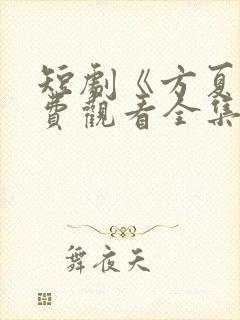 短劇《方夏
費觀看全集
舞夜天